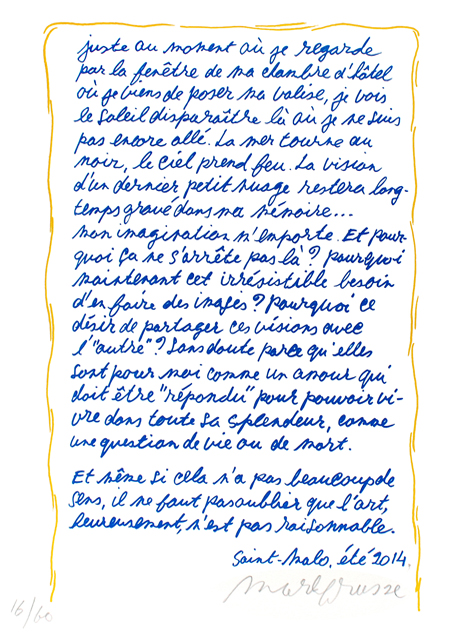 juste au moment où je regarde
par la fenêtre de ma chambre d'hôtel
où je viens de poser ma valise, je vois
le soleil disparaître là où je ne suis
pas encore allé. La mer tourne au
noir, le ciel prend feu. La vision
d'un dernier petit nuage restera long-
temps gravé dans ma mémoire...
mon imagination m'emporte. Et pour-
quoi ça ne s'arrête pas là ? pourquoi
maintenant cet irrésistible besoin
d'en faire des images ? pourquoi ce
désir de partager ces visions avec
l'"autre" ? Sans doute parce qu'elles
sont pour moi comme un amour qui
doit être "répondu" pour pouvoir vi-
vre dans toute sa splendeur, comme
une question de vie ou de mort.
Et même si cela n'a pas beaucoup de
sens, il ne faut pas oublier que l'art,
heureusement, n'est pas raisonnable.
Saint-Malo, été 2014.
16/60